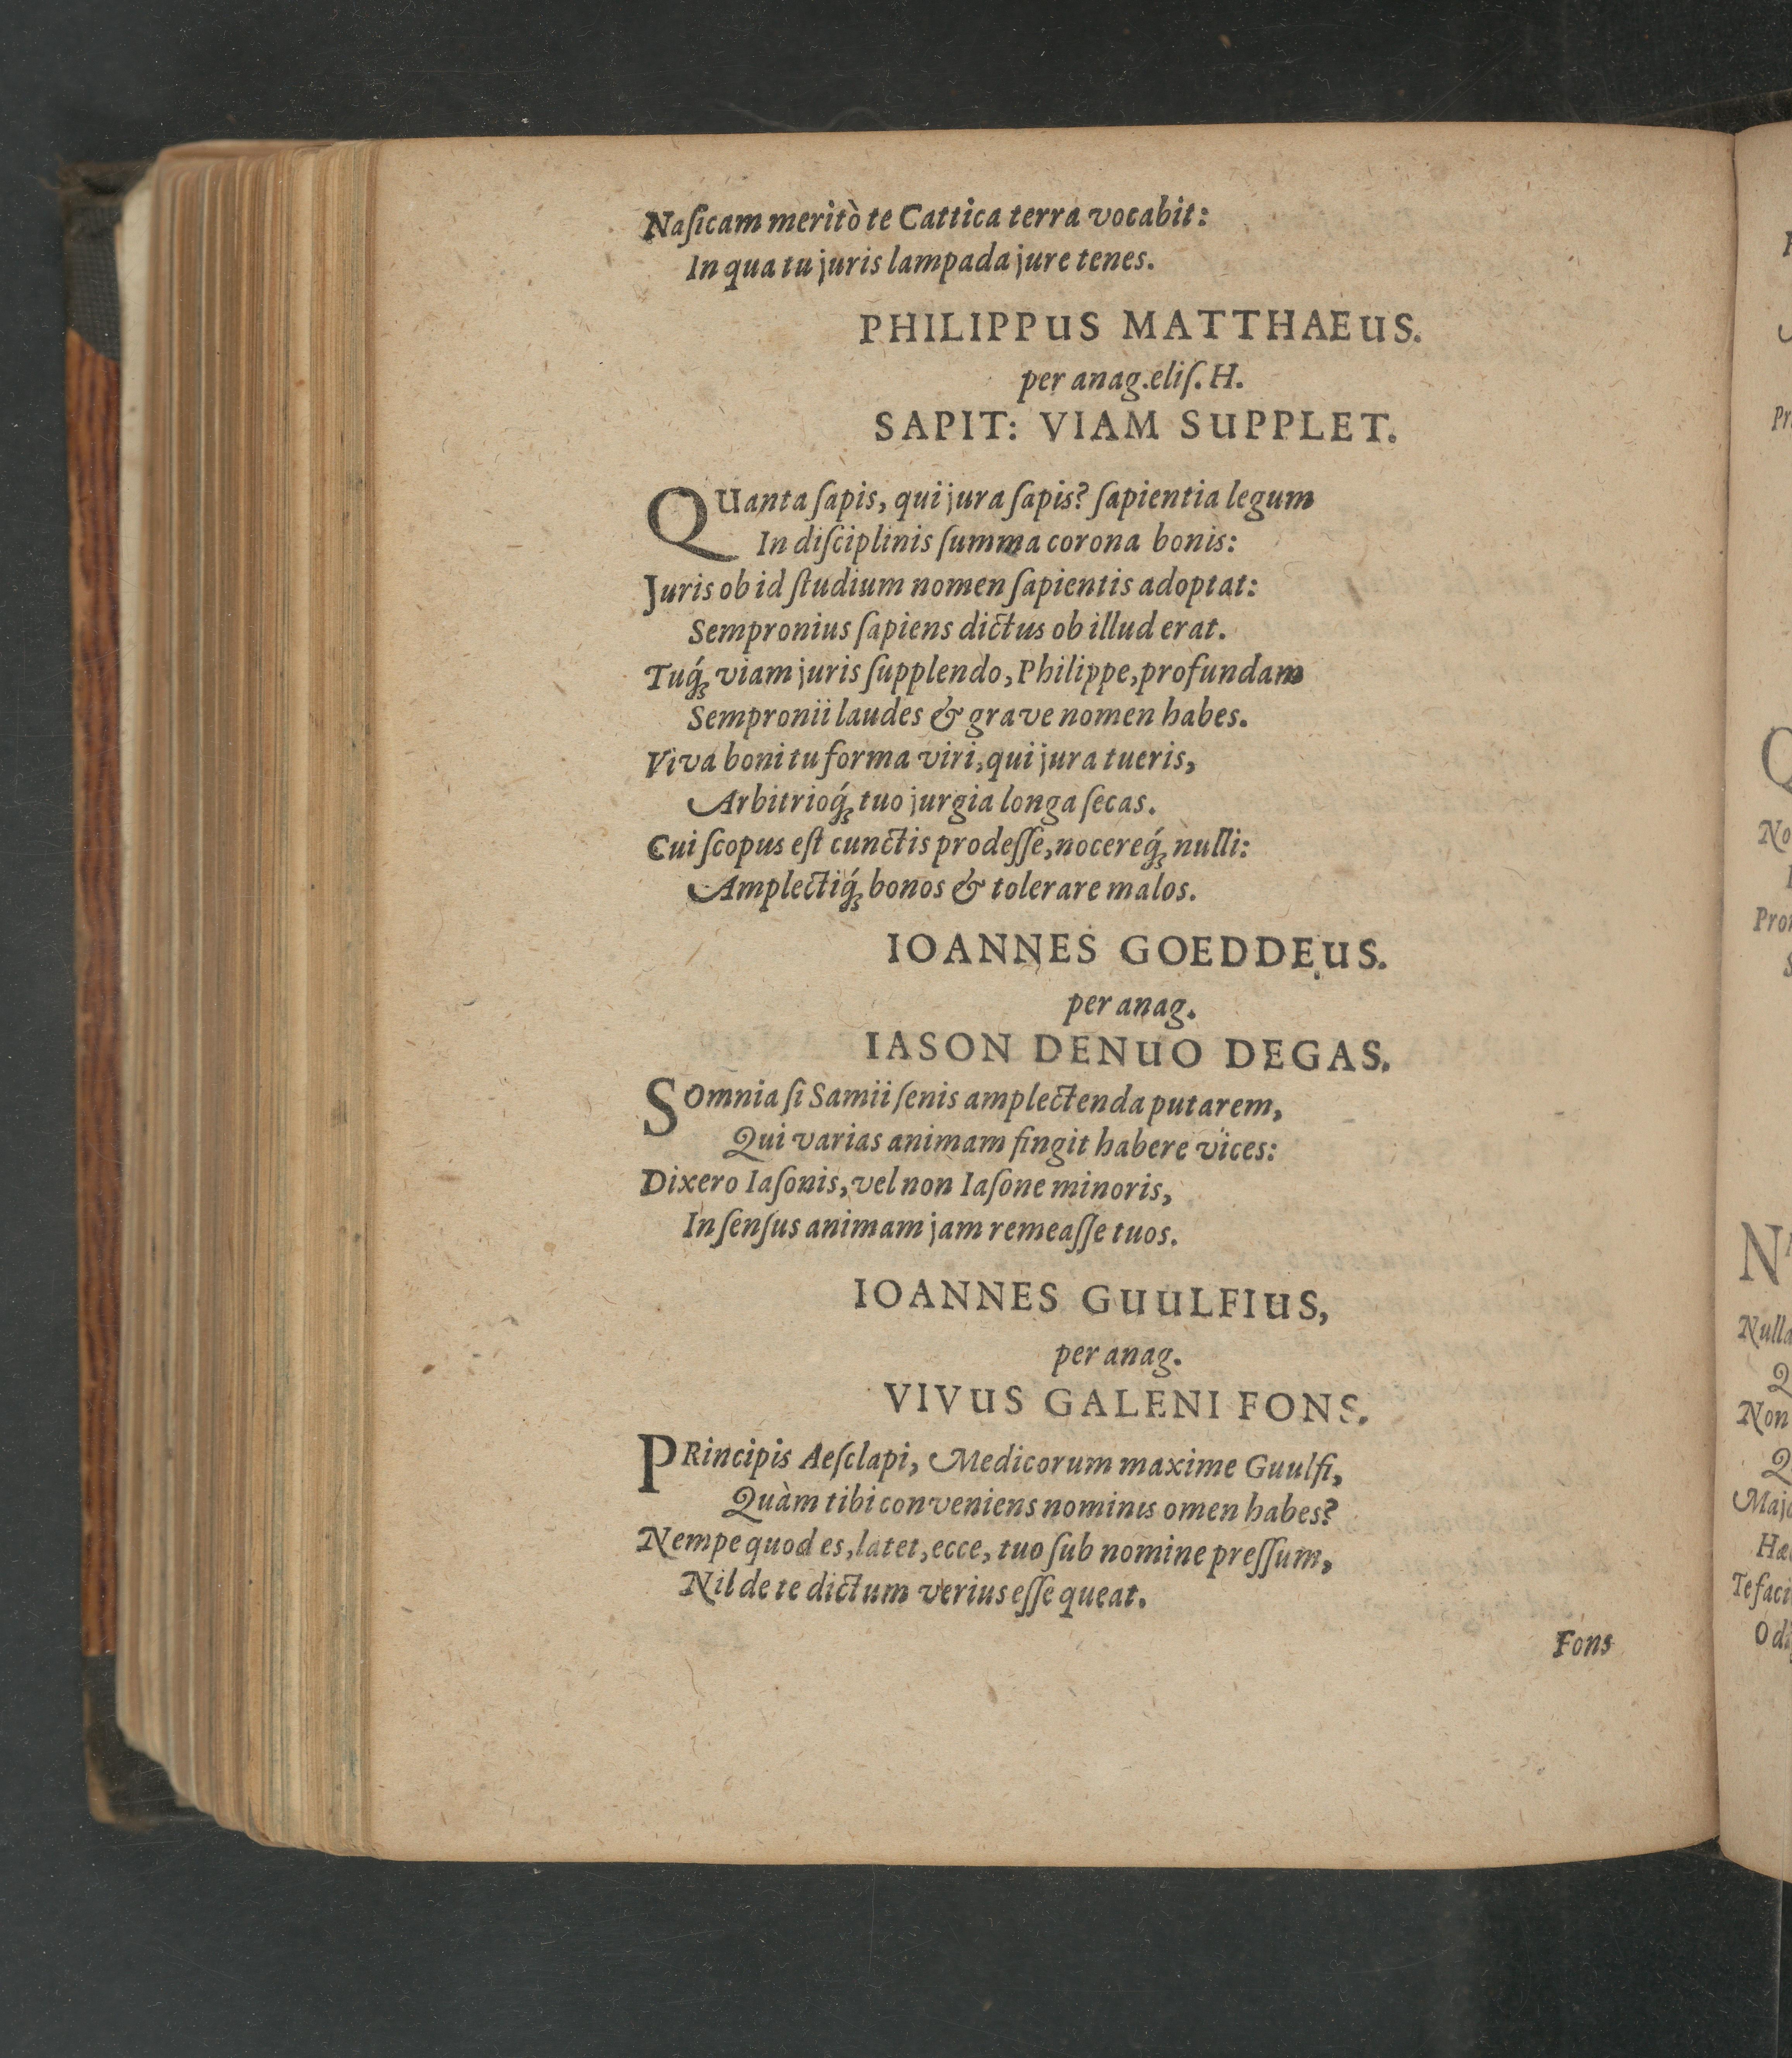 Naſicam meritò te Cattica terra vocabit:
In qua tu juris lampada jure tenes.
PHILIPPUS MATTHAEUS.
per anag. eliſ. H.
SAPIT: VIAM SUPPLET.
QUanta ſapis, qui jura ſapis? ſapientia legum
In diſciplinis ſumma corona bonis:
Juris ob id ſtudium nomen ſapientis adoptat:
Sempronius ſapiens dictus ob illud erat.
Tuq́ꝫ viam juris ſupplendo, Philippe, profundam
Sempronii laudes & grave nomen habes.
Viva boni tu forma viri, qui jura tueris,
Arbitrioq́ꝫ tuo jurgia longa ſecas.
Cui ſcopus eſt cunctis prodeſſe, nocereq́ꝫ nulli:
Amplectiq́ꝫ bonos & tolerare malos.
IOANNES GOEDDEUS.
per anag.
IASON DENUO DEGAS.
SOmnia ſi Samii ſenis amplectenda putarem,
Qui varias animam fingit habere vices:
Dixero Iaſonis, vel non Iaſone minoris,
In ſenſus animam jam remeaſſe tuos.
IOANNES GUULFIUS,
per anag.
VIVUS GALENI FONS.
PRincipis Aeſclapi, Medicorum maxime Guulfi,
Quàm tibi conveniens nominis omen habes?
Nempe quod es, latet, ecce, tuo ſub nomine preſſum,
Nil de te dictum verius eſſe queat.
Fons